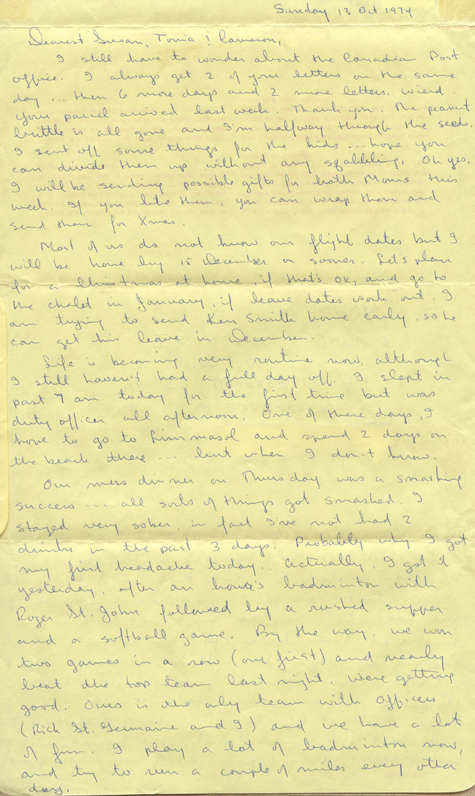 Sunday 13 Oct 1974
Dearest Susan, Tonia & Cameron,
I still have to wonder about the Canadian Post
office. I always get 2 of your letters on the same
day... then 6 more days and 2 more letters. Wierd.
Your parcel arrived last week. Thank you. The peanut
brittle is all gone and I'm halfway through the seeds.
I sent off some things for the kids... hope you
can divide them up without any squabbling. Oh yes,
I will be sending possible gifts for both Moms this
week. If you like them, you can wrap them and
send them for Xmas.
Most of us do not know our flight dates but I
will be home by 15 December or sooner. Let's plan
for a Christmas at home, if that's ok, and go to
the chalet in January, if leave dates work out. I
am trying to send Ken Smith home early, so he
can get his leave in December.
Life is becoming very routine now, although
I still haven't had a full day off. I slept in
past 7 am today for the first time but was
duty officer all afternoon. One of these days, I
have to go to Limmasol and spend 2 days on
the beach there... but when I don't know.
Our mess dinner on Thursday was a smashing
success... all sorts of things got smashed. I
stayed very sober, in fact I've not had 2
drinks in the past 3 days. Probably why I got
my first headache today. Actually, I got it
yesterday, after an hour's badminton with
Roger St. John followed by a rushed supper
and a softball game. By the way, we won
two games in a row (our first) and nearly
beat the top team last night. We're getting
good. Ours is the only team with Officers
(Rick St. Germaine and I) and we have a lot
of fun. I play a lot of badminton now,
and try to run a couple of miles every other
day.